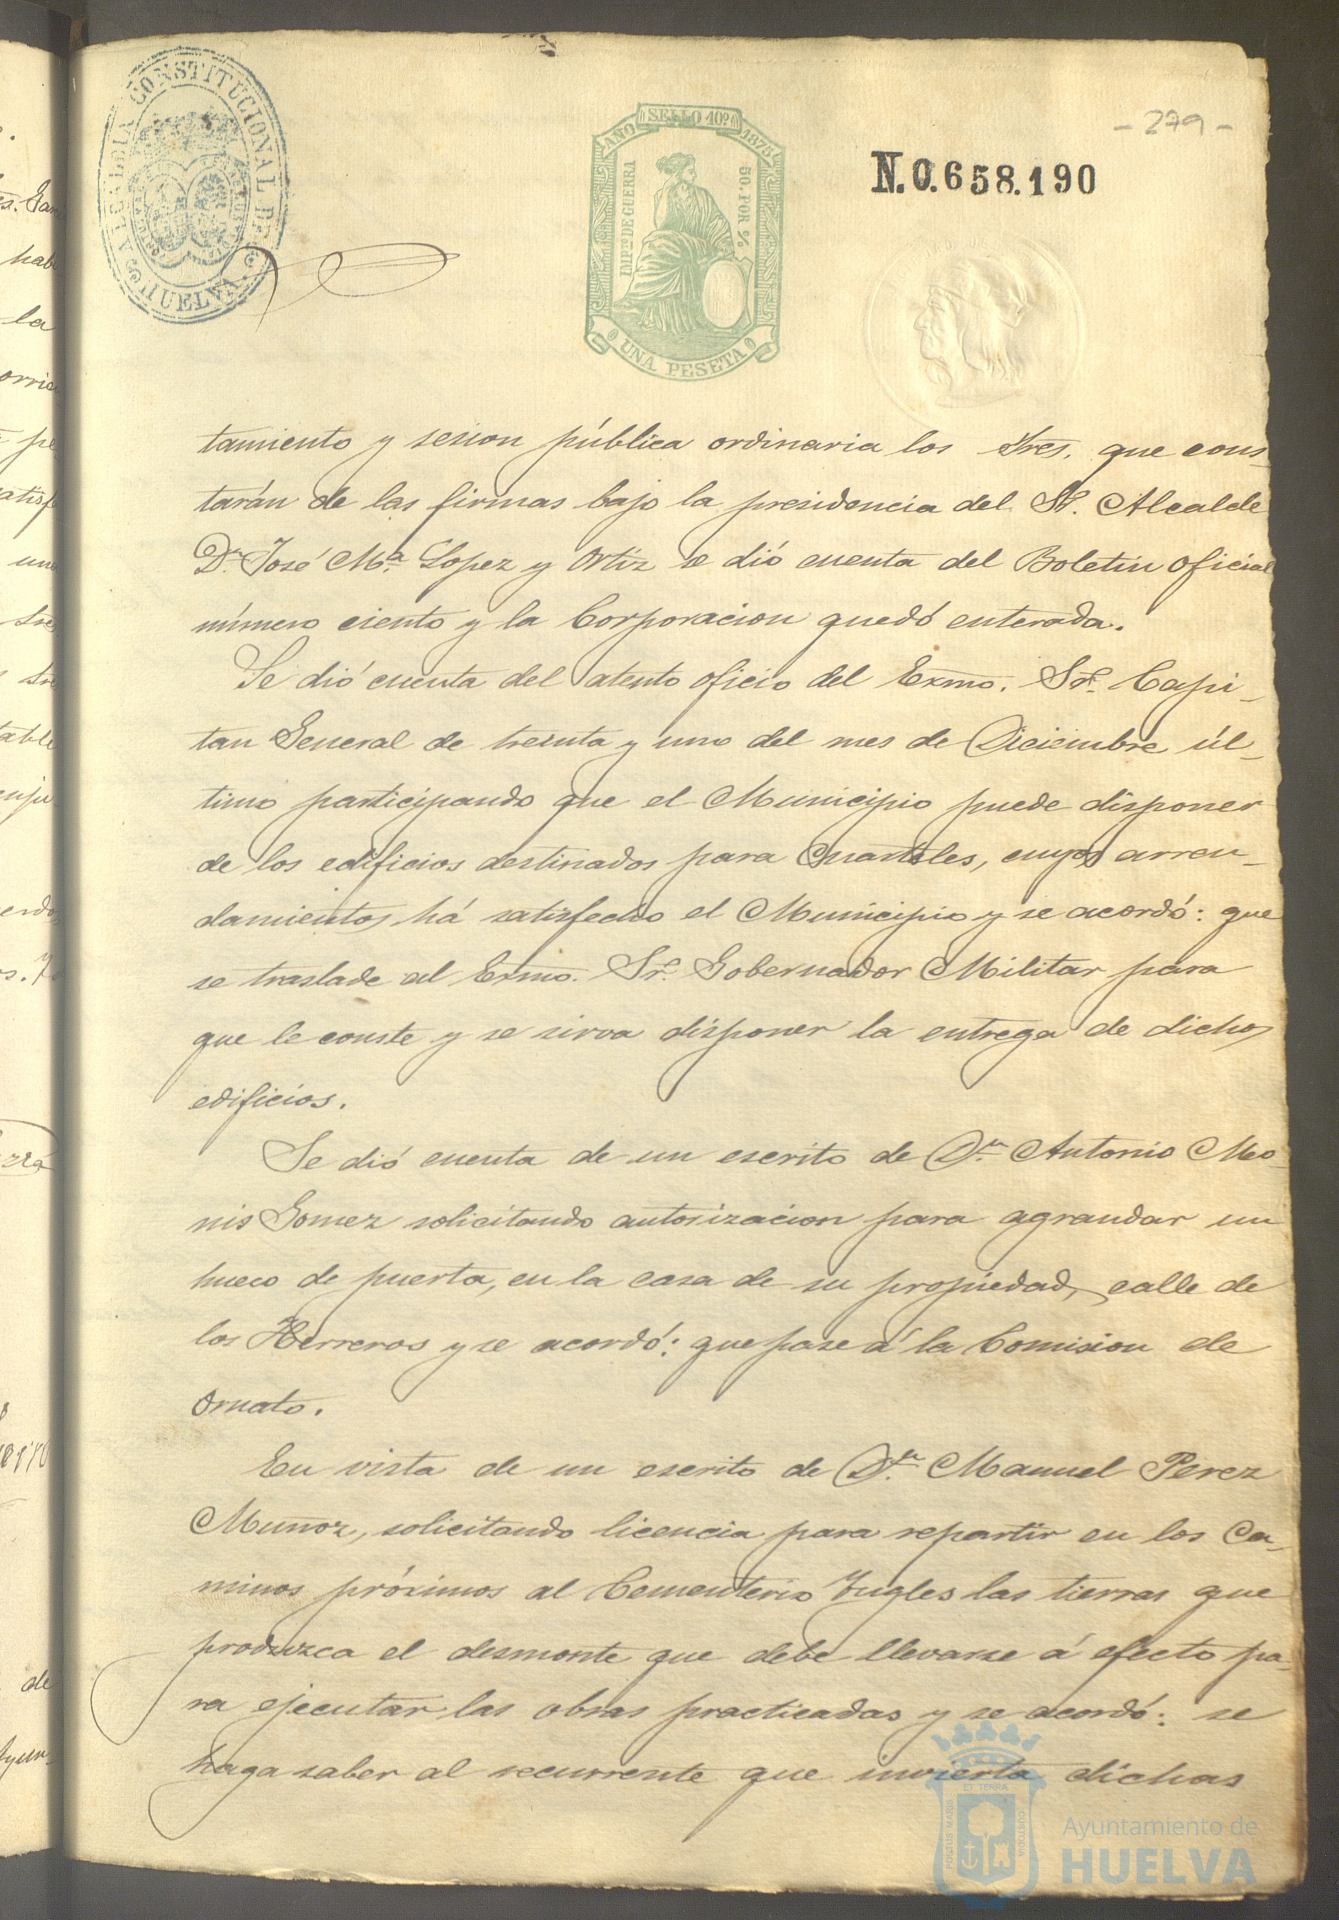 ALCALDIA CONSTITUCIONAL DE HUELVA.
SELLO 10º
AÑO 1875
IMPTO DE GUERRA
50. POR %
UNA PESETA
- 279 -
N.0.658.190
tamiento y sesion pública ordinaria los Sres. que cons-
tarán de las firmas bajo la presidencia del Sr. Alcalde
Dn. José Ma. Lopez y Ortiz se dió cuenta del Boletin oficial
número ciento y la Corporacion quedó enterada.
Se dió cuenta del atento oficio del Exmo. Sr. Capi-
tan General de treinta y uno del mes de Diciembre úl-
timo participando que el Municipio puede disponer
de los edificios destinados para Cuarteles, cuyos arren-
damientos há satisfecho el Municipio y se acordó: que
se traslade al Exmo. Sr. Gobernador Militar para
que le conste y se sirva disponer la entrega de dichos
edificios.
Se dió cuenta de un escrito de Dn. Antonio Mo-
nis Gomez solicitando autorizacion para agrandar un
hueco de puerta, en la casa de su propiedad, calle de
los Herreros y se acordó: que pase á la Comision de
Ornato.
En vista de un escrito de Dn. Manuel Perez
Muñoz, solicitando licencia para repartir en los Ca-
minos próximos al Cementerio Ingles las tierras que
produzca el desmonte que debe llevarse á efecto pa-
ra ejecutar las obras practicadas y se acordó: se
haga saber al recurrente que invierta dichas
PORTUS MARIS ET TERRA CUSTODIA
Ayuntamiento de
HUELVA